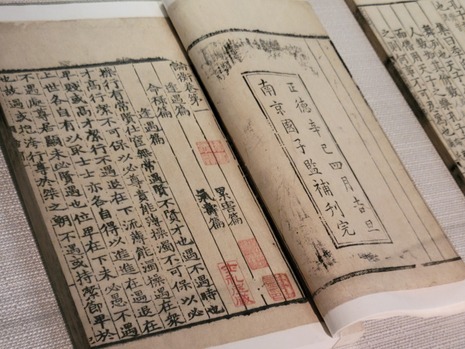 正德辛巳四月吉旦
南京國子監補刊完
論衡卷第一
逢遇篇 累害篇
命祿篇 氣壽篇
逢遇篇
操行有常賢仕宦無常遇賢不賢才也遇不遇時也
才高行潔不可保以必尊貴能薄操濁不可保以必
卑賤或高才潔行不遇退在下流薄能濁操遇在衆
上世各自有以取士士亦各自得以進進在遇退在
不遇處尊居顯未必賢遇也位卑在下未必愚不遇
也故遇或抱洿行尊於桀之朝不遇或持潔節卑於